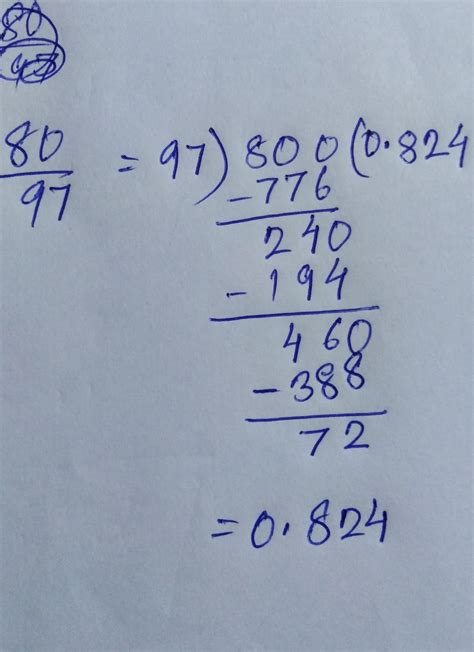 80
80/97 = 97) 800 (0.824
-776
240
-194
460
-388
72
= 0.824